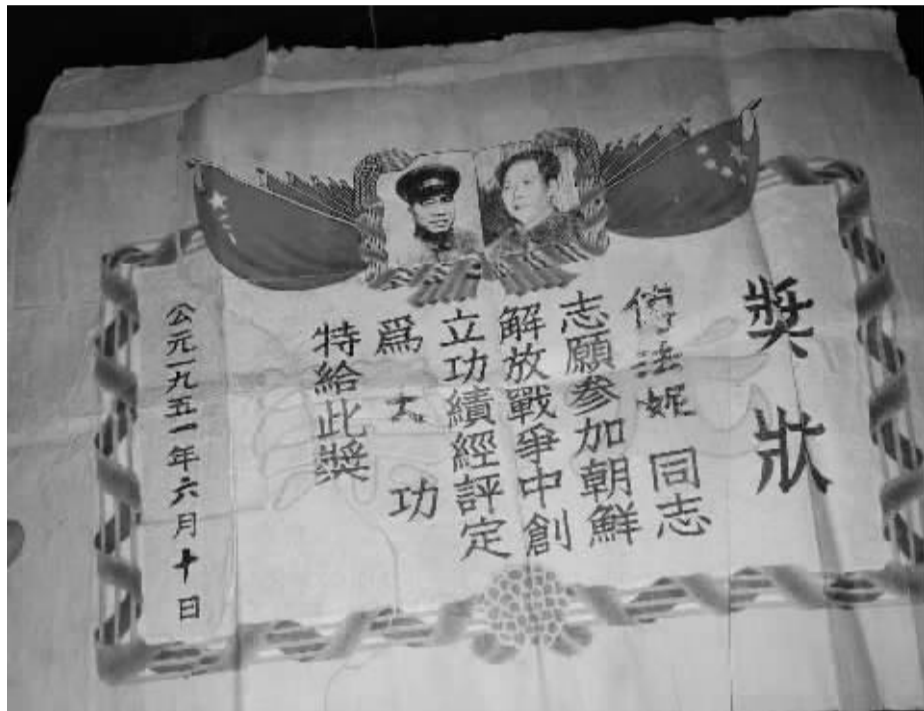 獎狀
傅法妮 同志
志願参加朝鮮
解放戰爭中創
立功績經評定
爲大 功
特給此獎
公元一九五一年六月十日